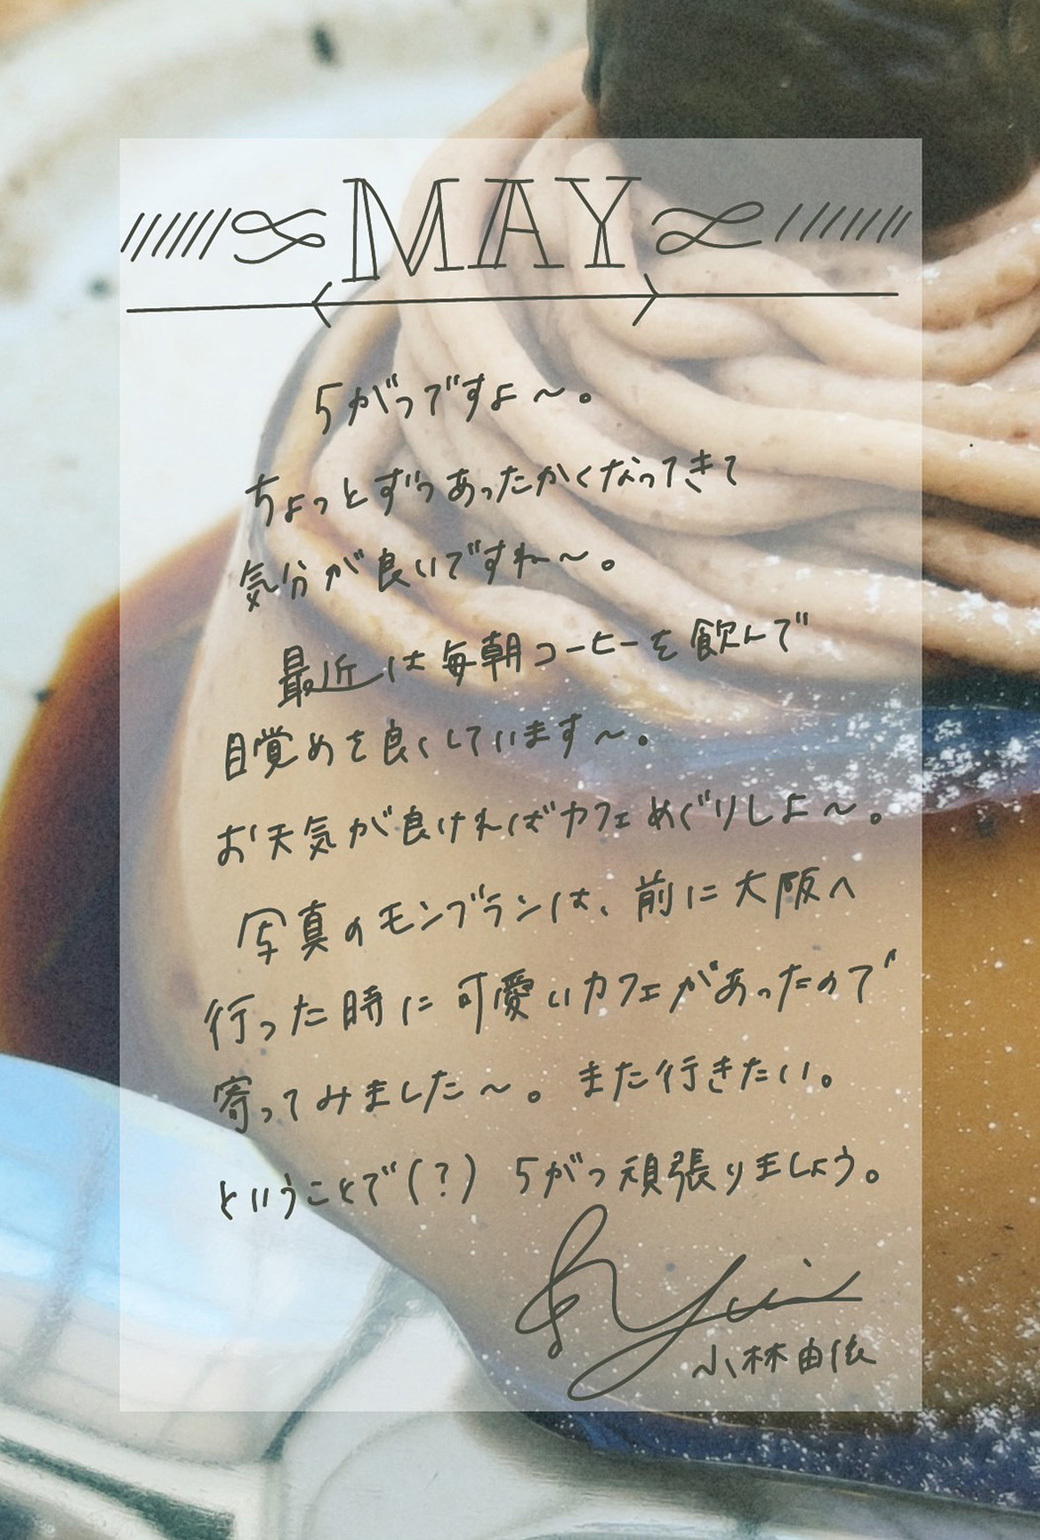 MAY
5がつですよ〜。
ちょっとずつあったかくなってきて
気分が良いですね〜。
最近は毎朝コーヒーを飲んで
目覚めを良くしています〜。
お天気が良ければカフェめぐりしよ〜。
写真のモンブランは、前に大阪へ
行った時に可愛いカフェがあったので
寄ってみました〜。また行きたい。
ということで(?) 5がつ頑張りましょう。
Yui
小林由依